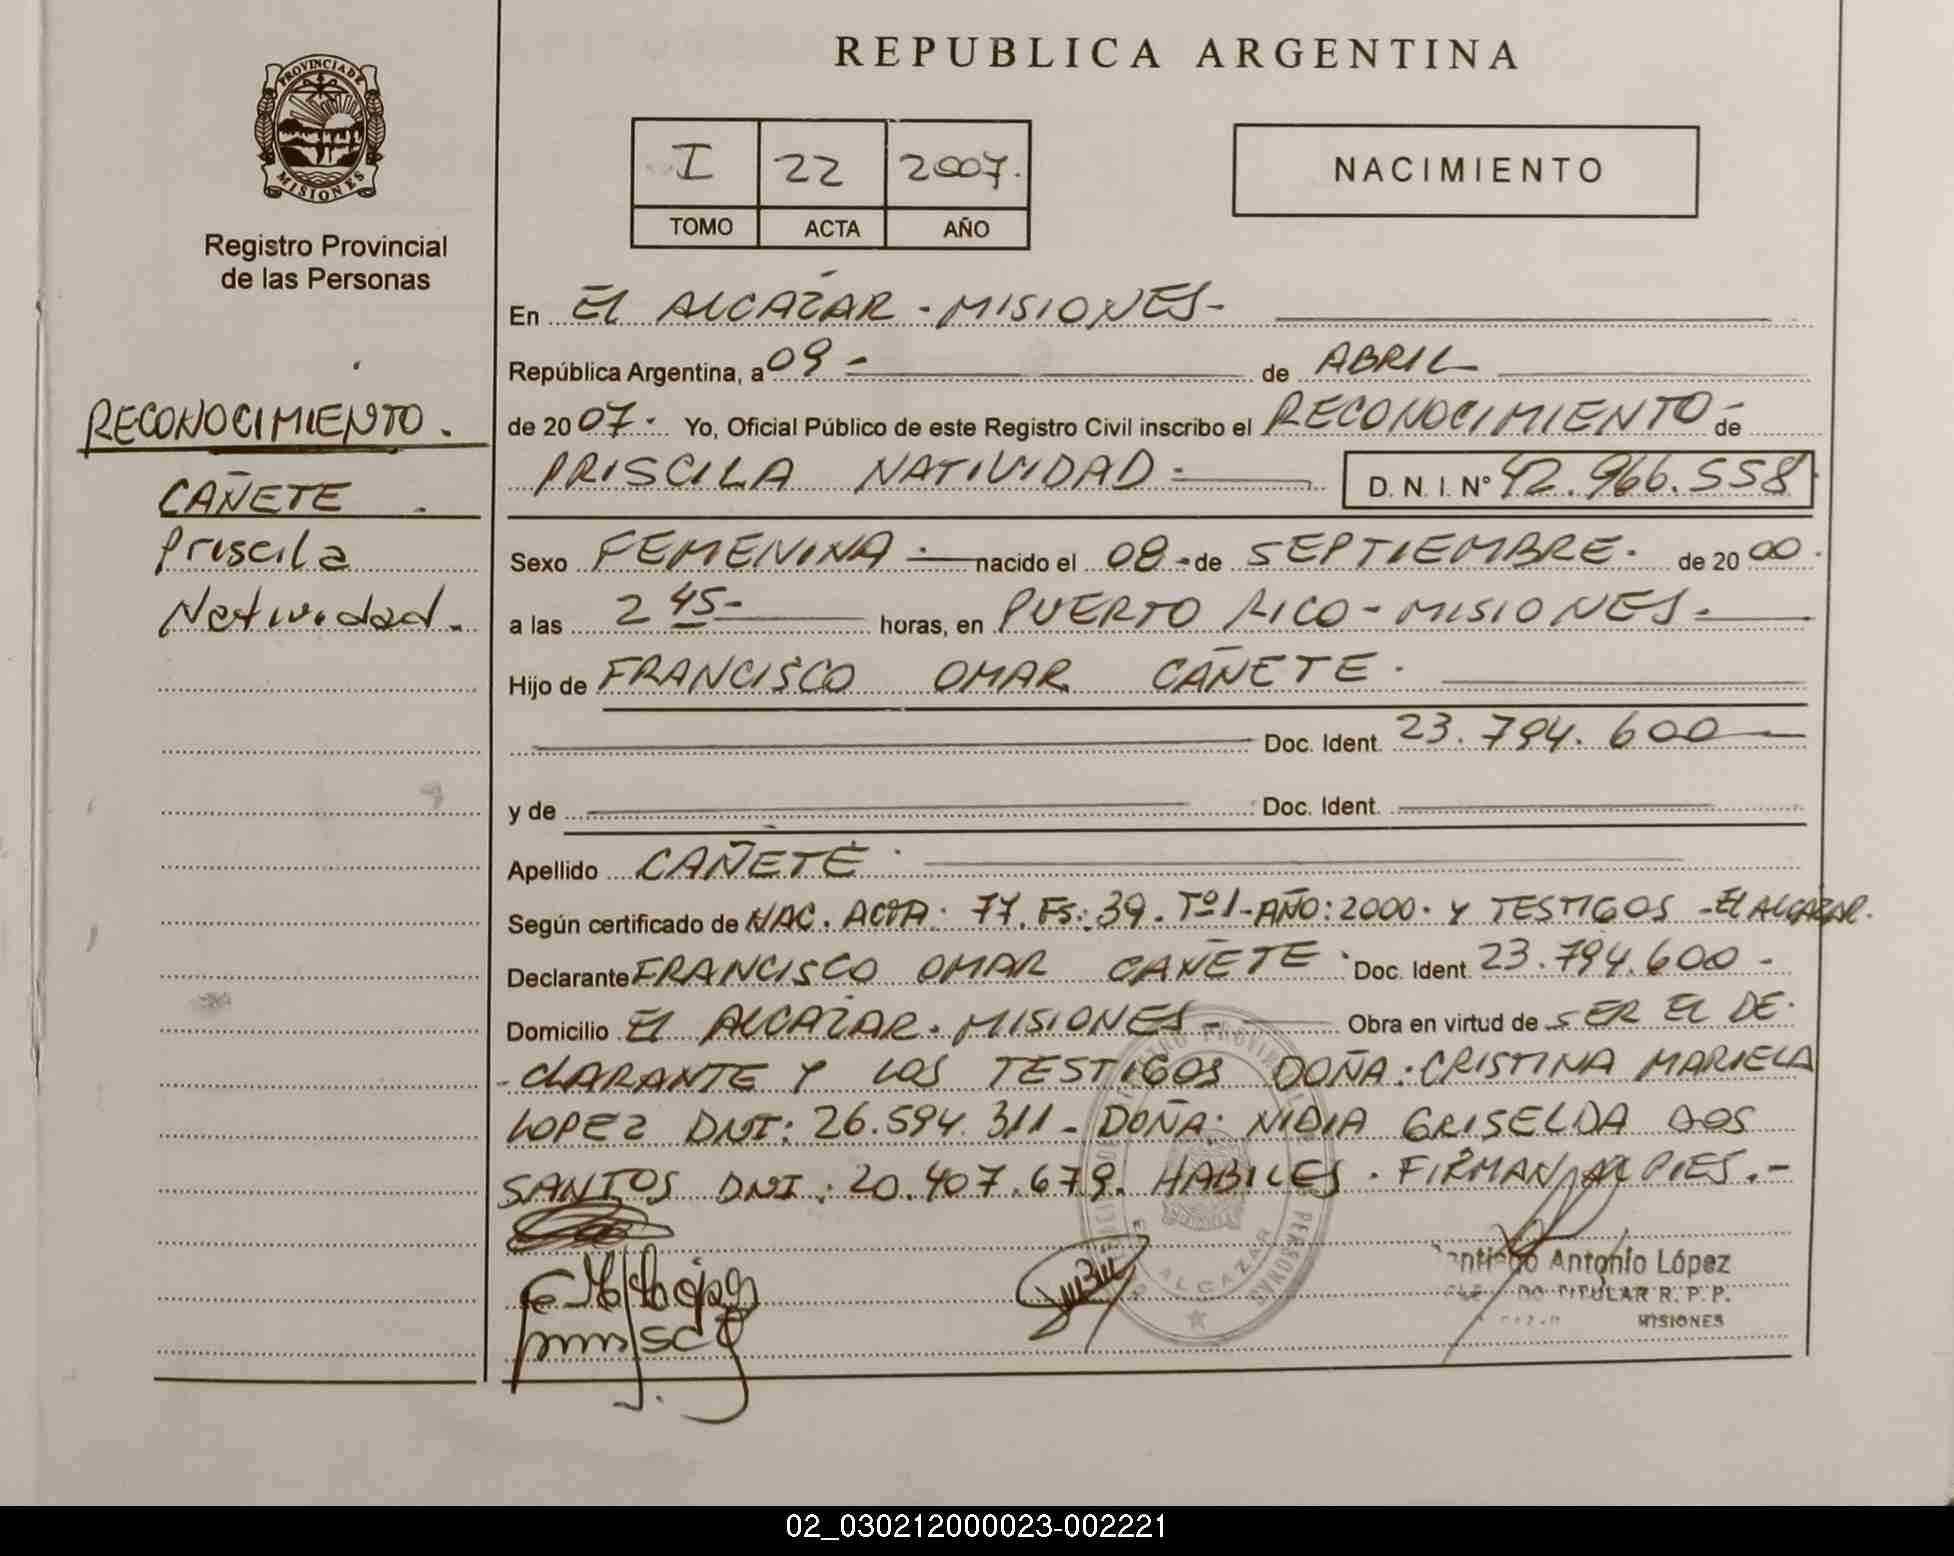 REPUBLICA ARGENTINA
PROVINCIA DE
MISIONES
Registro Provincial
de las Personas
I 22 2007.
TOMO ACTA AÑO
NACIMIENTO
RECONOCIMIENTO.
CAÑETE
Priscila
Natividad.
En EL ALCAZAR - MISIONES-
República Argentina, a 09 - de ABRIL
de 20 07- Yo, Oficial Público de este Registro Civil inscribo el RECONOCIMIENTO - de
PRISCILA NATIVIDAD - D. N. I. N° 42.966.558
Sexo FEMENINA - nacido el 08 - de SEPTIEMBRE. de 20 00.
a las 2 45- horas, en PUERTO RICO - MISIONES.
Hijo de FRANCISCO OMAR CAÑETE.
Doc. Ident. 23.794.600
y de Doc. Ident.
Apellido CAÑETE
Según certificado de NAC. ACTA: 77. Fs: 39. Tº1- AÑO: 2000. Y TESTIGOS - EL ALCAZAR.
Declarante FRANCISCO OMAR CAÑETE. Doc. Ident. 23.794.600 -
Domicilio EL ALCAZAR. MISIONES - Obra en virtud de SER EL DE-
-CLARANTE Y LOS TESTIGOS DOÑA: CRISTINA MARIELA
LOPEZ DNI: 26.594.311 - DOÑA: NIDIA GRISELDA DOS
SANTOS DNI: 20.407.679. HABILES. FIRMAN AL PIES.-
ALCAZAR
Antonio López
TITULAR R. P. P.
MISIONES
02_030212000023-002221